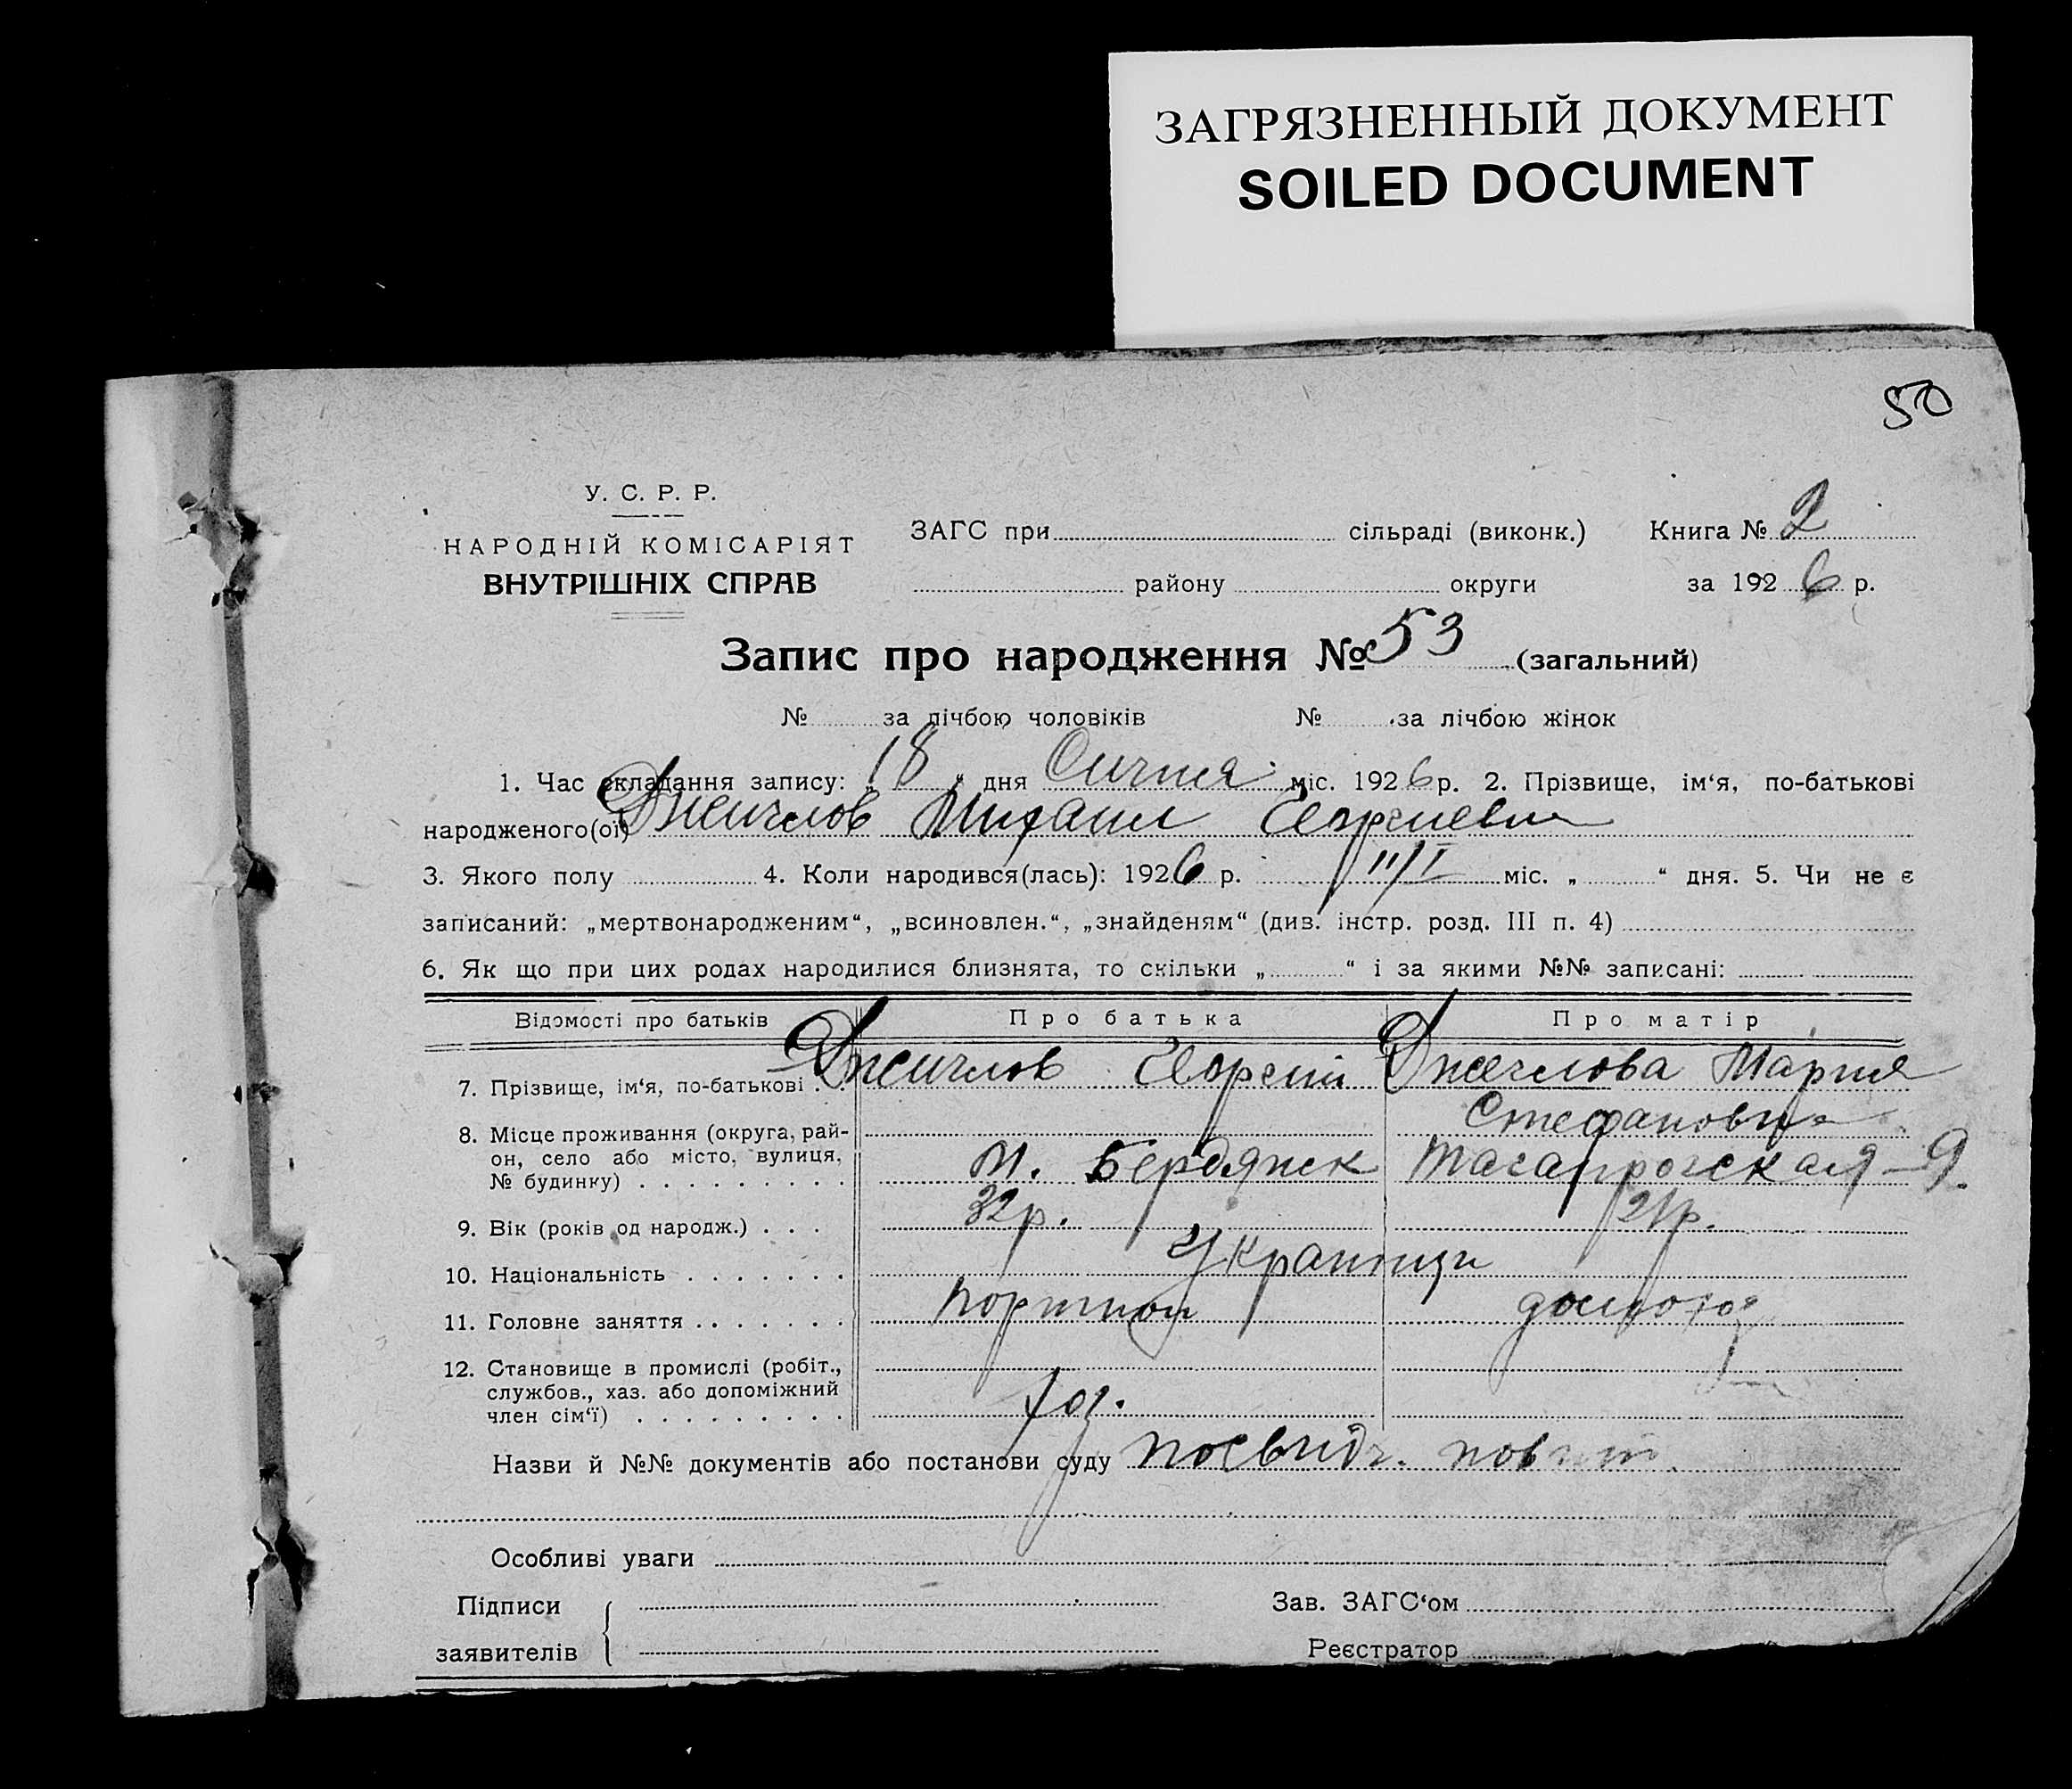 ЗАГРЯЗНЕННЫЙ ДОКУМЕНТ
SOILED DOCUMENT
50
У. С. Р. Р.
НАРОДНІЙ КОМІСАРІЯТ
ВНУТРІШНІХ СПРАВ
ЗАГС при сільраді (виконк.) Книга № 2
району округи за 1926 р.
Запис про народження № 53 (загальний)
№ за лічбою чоловіків № за лічбою жінок
1. Час складання запису: „18“ дня Сичня міс. 1926 р. 2. Прізвище, ім‘я, по-батькові
народженого(ої) Джичлов Михаил Георгиевич
3. Якого полу 4. Коли народився(лась): 1926 р. 11/I міс. „ “ дня. 5. Чи не є
записаний: „мертвонародженим“, „всиновлен.“, „знайденям“ (див. інстр. розд. III п. 4)
6. Як що при цих родах народилися близнята, то скільки „ “ і за якими №№ записані:
Відомості про батьків Про батька Про матір
7. Прізвище, ім‘я, по-батькові . . Джичлов Георгий Джичлова Мария
Стефановна
8. Місце проживання (округа, рай-
он, село або місто, вулиця, м. Бердянск Таганрогская – 9.
№ будинку) . . . . . . . . .
9. Вік (років од народж.) . . . 32 р. 21 р.
10. Національність . . . . . . . Украинци
11. Головне заняття . . . . . . . портной домохоз
12. Становище в промислі (робіт.,
службов., хаз. або допоміжний
член сім‘ї) . . . . . . . . . хоз.
Назви й №№ документів або постанови суду посвидч.
Особливі уваги
Підписи Зав. ЗАГС‘ом
заявителів Реєстратор